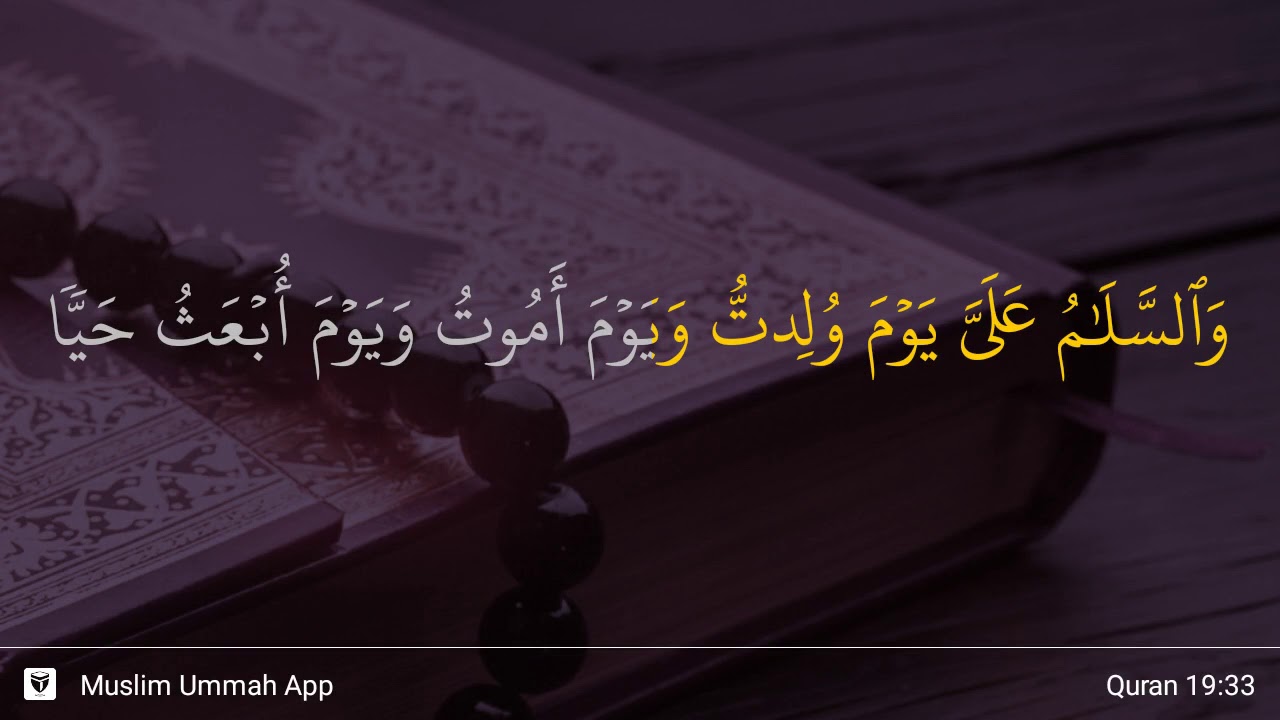 وَٱلسَّلَـٰمُ عَلَىَّ يَوْمَ وُلِدتُّ وَيَوْمَ أَمُوتُ وَيَوْمَ أُبْعَثُ حَيًّا
Muslim Ummah App
Quran 19:33